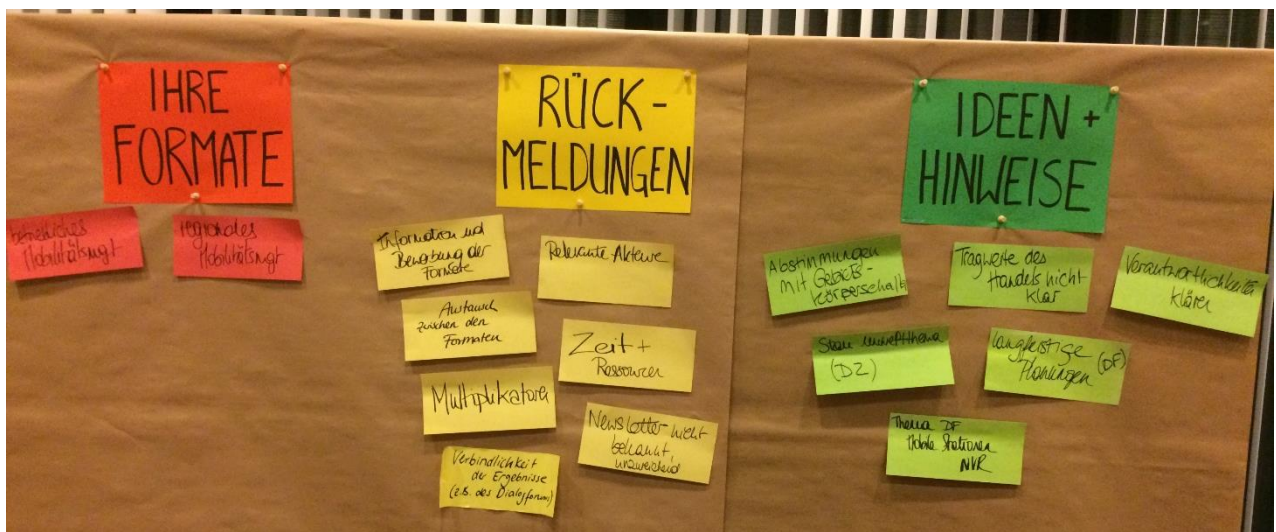 IHRE
FORMATE
betriebliches
Mobilitätsmgt
regionales
Mobilitätsmgt
RÜCK-
MELDUNGEN
Information und
Bewerbung der
Formate
Relevante Akteure
Austausch
zwischen den
Formaten
Zeit +
Ressourcen
Multiplikatoren
Newsletter nicht
bekannt,
unzureichend
Verbindlichkeit
der Ergebnisse
(z.B. des Dialogforum)
IDEEN +
HINWEISE
Abstimmungen
mit Gebiets-
körperschaft
Tragweite des
Handels nicht
klar
Verantwortlichkeiten
klären
(DZ)
langfristige
Planungen (DF)
Thema DF
Mobile Stationen
NVR